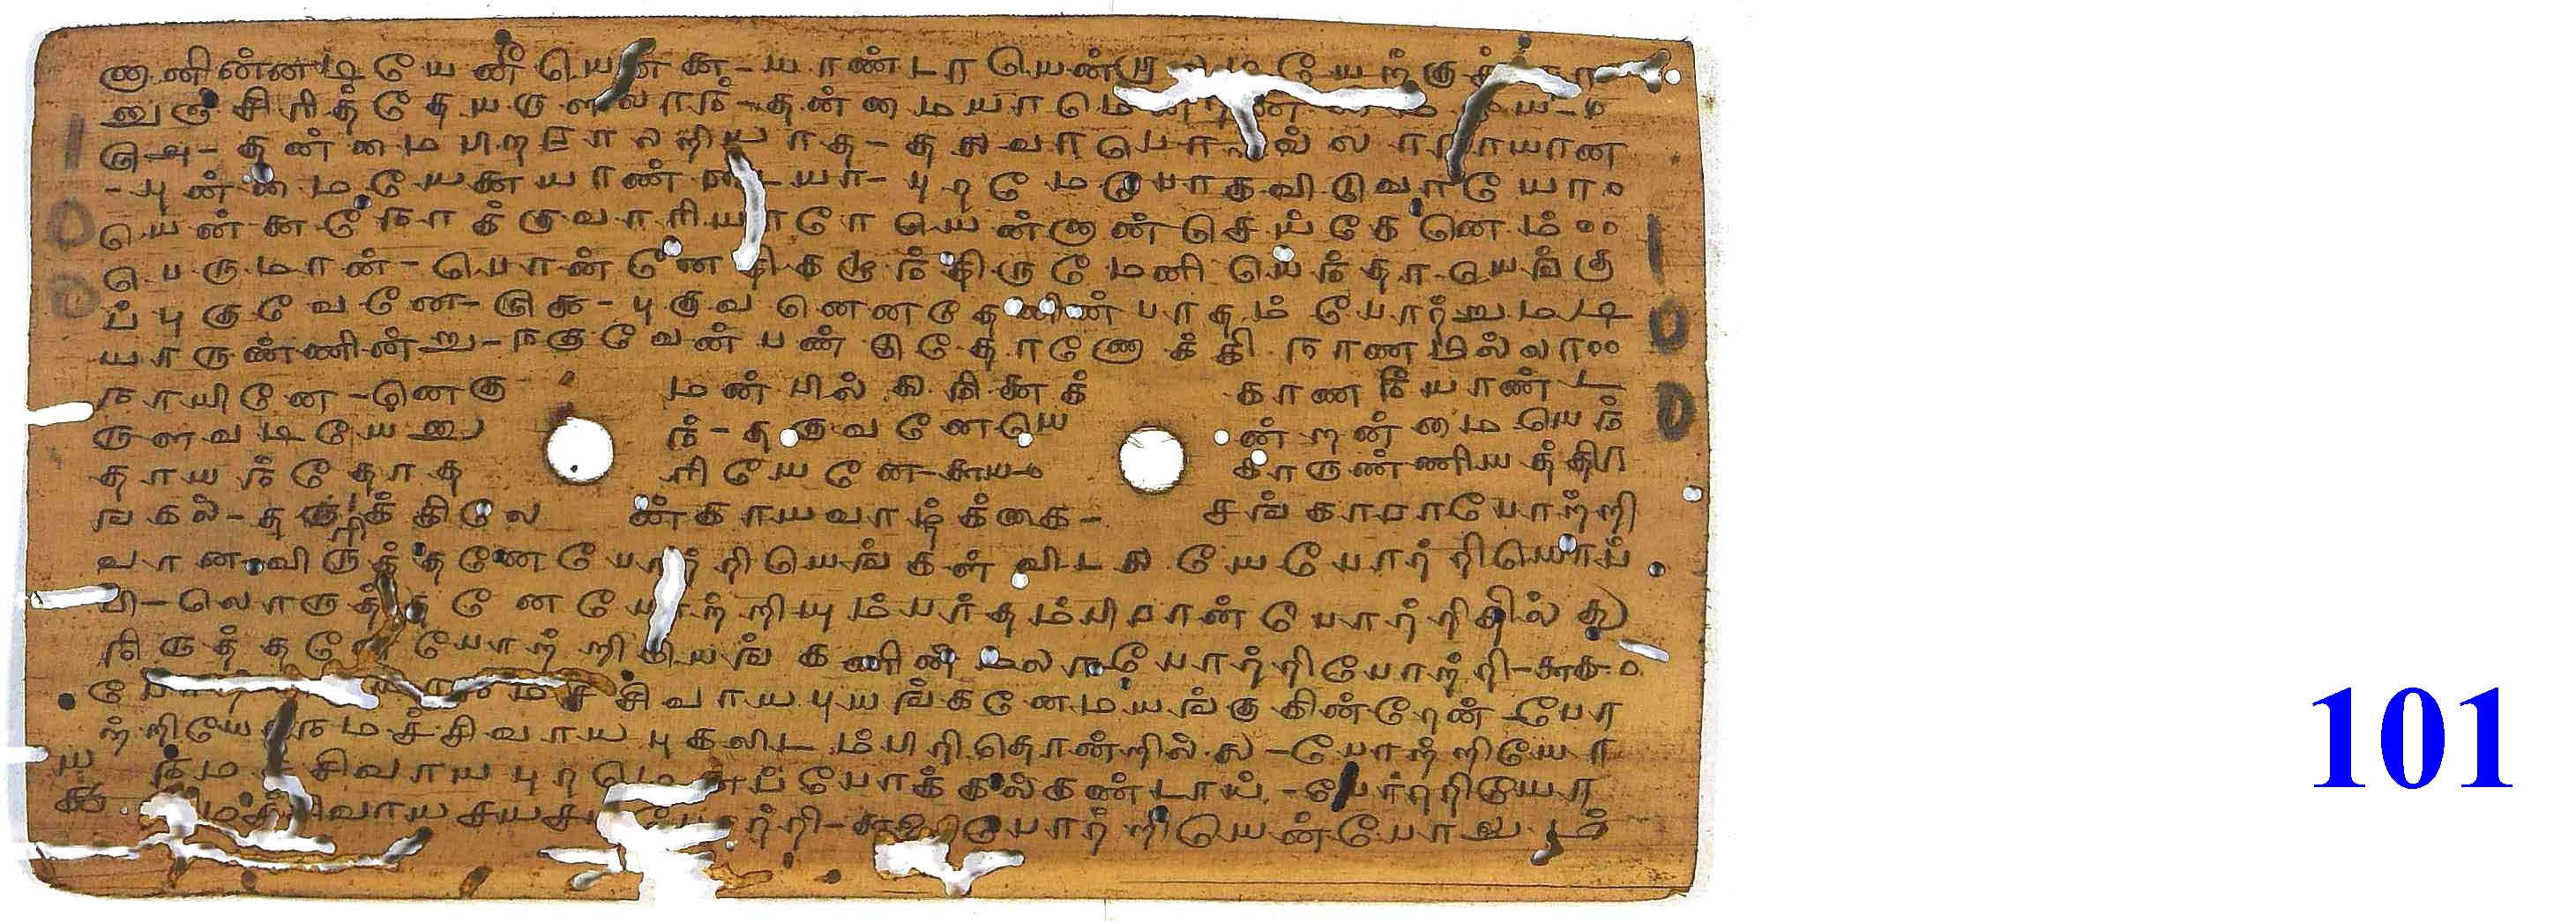 னானின்னடியேனென்னை-யாண்டாயென்றா லடியேற்குத்
னுஞ் சிரித்தேயருளலாந்-தன்மையாமென்றன்
ருஅ-தன்மை பிறரா லறியாத-தலைவா பொல்லா நாயான
-புன்மையேனை யாண்டையா-புறமே போகவிடுவாயோ
யென்னைநோக்குவாரியாரே யென்னான்செய்கேனெம்
பெருமான்-பொன்னே திகழுந்திருமேனி யெந்தா-யெங்கு
ப்புகுவேனே-ருகூ-புகுவனெனதேநின்பாதம் போற்றுமடி
யாருண்ணின்று-நகுவேன்பண்டு தோணோக்கி நாணமில்லா
நாயினேன-னெகு மன்பில்லை நினைக் காண நீயாண்ட
ருளவடியேனு ந்-தகுவனேயெ ன்றன்மையெந்
தாயந்தோத ரியேனே-சுய காருண்ணியத்திர
ங்கல்-தரிக்கிலே ன்காயவாழ்க்கை- சங்கராபோற்றி
வானவிருத்தனேபோற்றியெங்கள் விடலையேபோற்றியொப்
பி-லொருத்தனேபோற்றியும்பர்தம்பிரான் போற்றிதில்லை
நிருத்தனே போற்றியெங்கணின்மலாபோற்றிபோற்றி-சுக
போற்றியோநமச்சிவாயபுயங்கனேமயங்குகின்றேன்-போ
ற்றியோநமச்சிவாய புகலிடம்பிறிதொன்றில்லை-போற்றியோ
நமச்சிவாய புறமெனப்போக்கல்கண்டாய்-போற்றியோ
நமச்சிவாய சயசயபோற்றி-சுஉ போற்றியென்போலும்
101